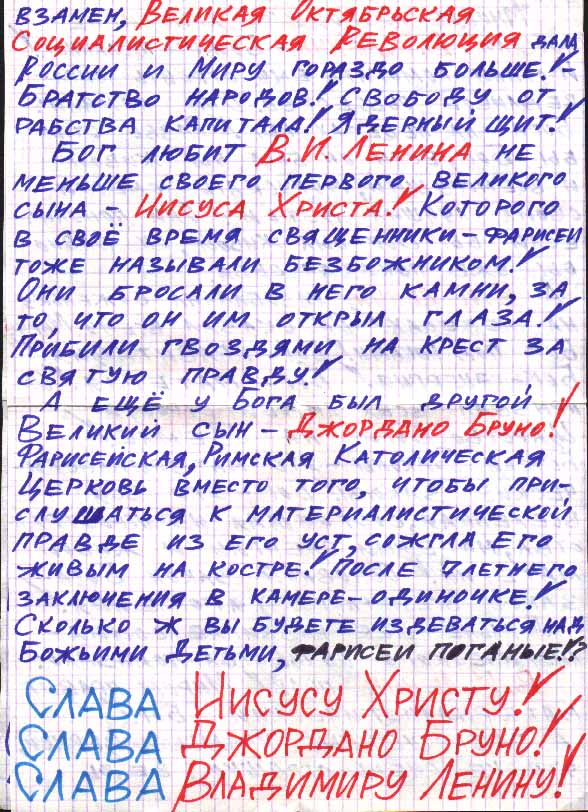 взамен, Великая Октябрьская
Социалистическая Революция дала
России и Миру гораздо больше! -
Братство народов! Свободу от
рабства капитала! Ядерный щит!
Бог любит В.И. Ленина не
меньше своего первого великого
сына - Иисуса Христа! Которого
в своё время священники - фарисеи
тоже называли безбожником!
Они бросали в него камни, за
то, что он им открыл глаза!
Прибили гвоздями на крест за
святую правду!
А ещё у Бога был другой
Великий сын - Джордано Бруно!
Фарисейская, Римская Католическая
Церковь вместо того, чтобы при-
слушаться к материалистической
правде из его уст, сожгла Его
живым на костре! После 7 летнего
заключения в камере-одиночке!
Сколько ж вы будете издеваться над
Божьими Детьми, фарисеи поганые!?
Слава Иисусу Христу!
Слава Джордано Бруно!
Слава Владимиру Ленину!